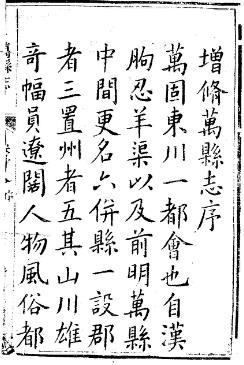 增脩萬縣志序
萬固東川一都會也自漢
朐忍羊渠以及前明萬縣
中間更名六併縣一設郡
者三置州者五其山川雄
奇幅員遼闊人物風俗都